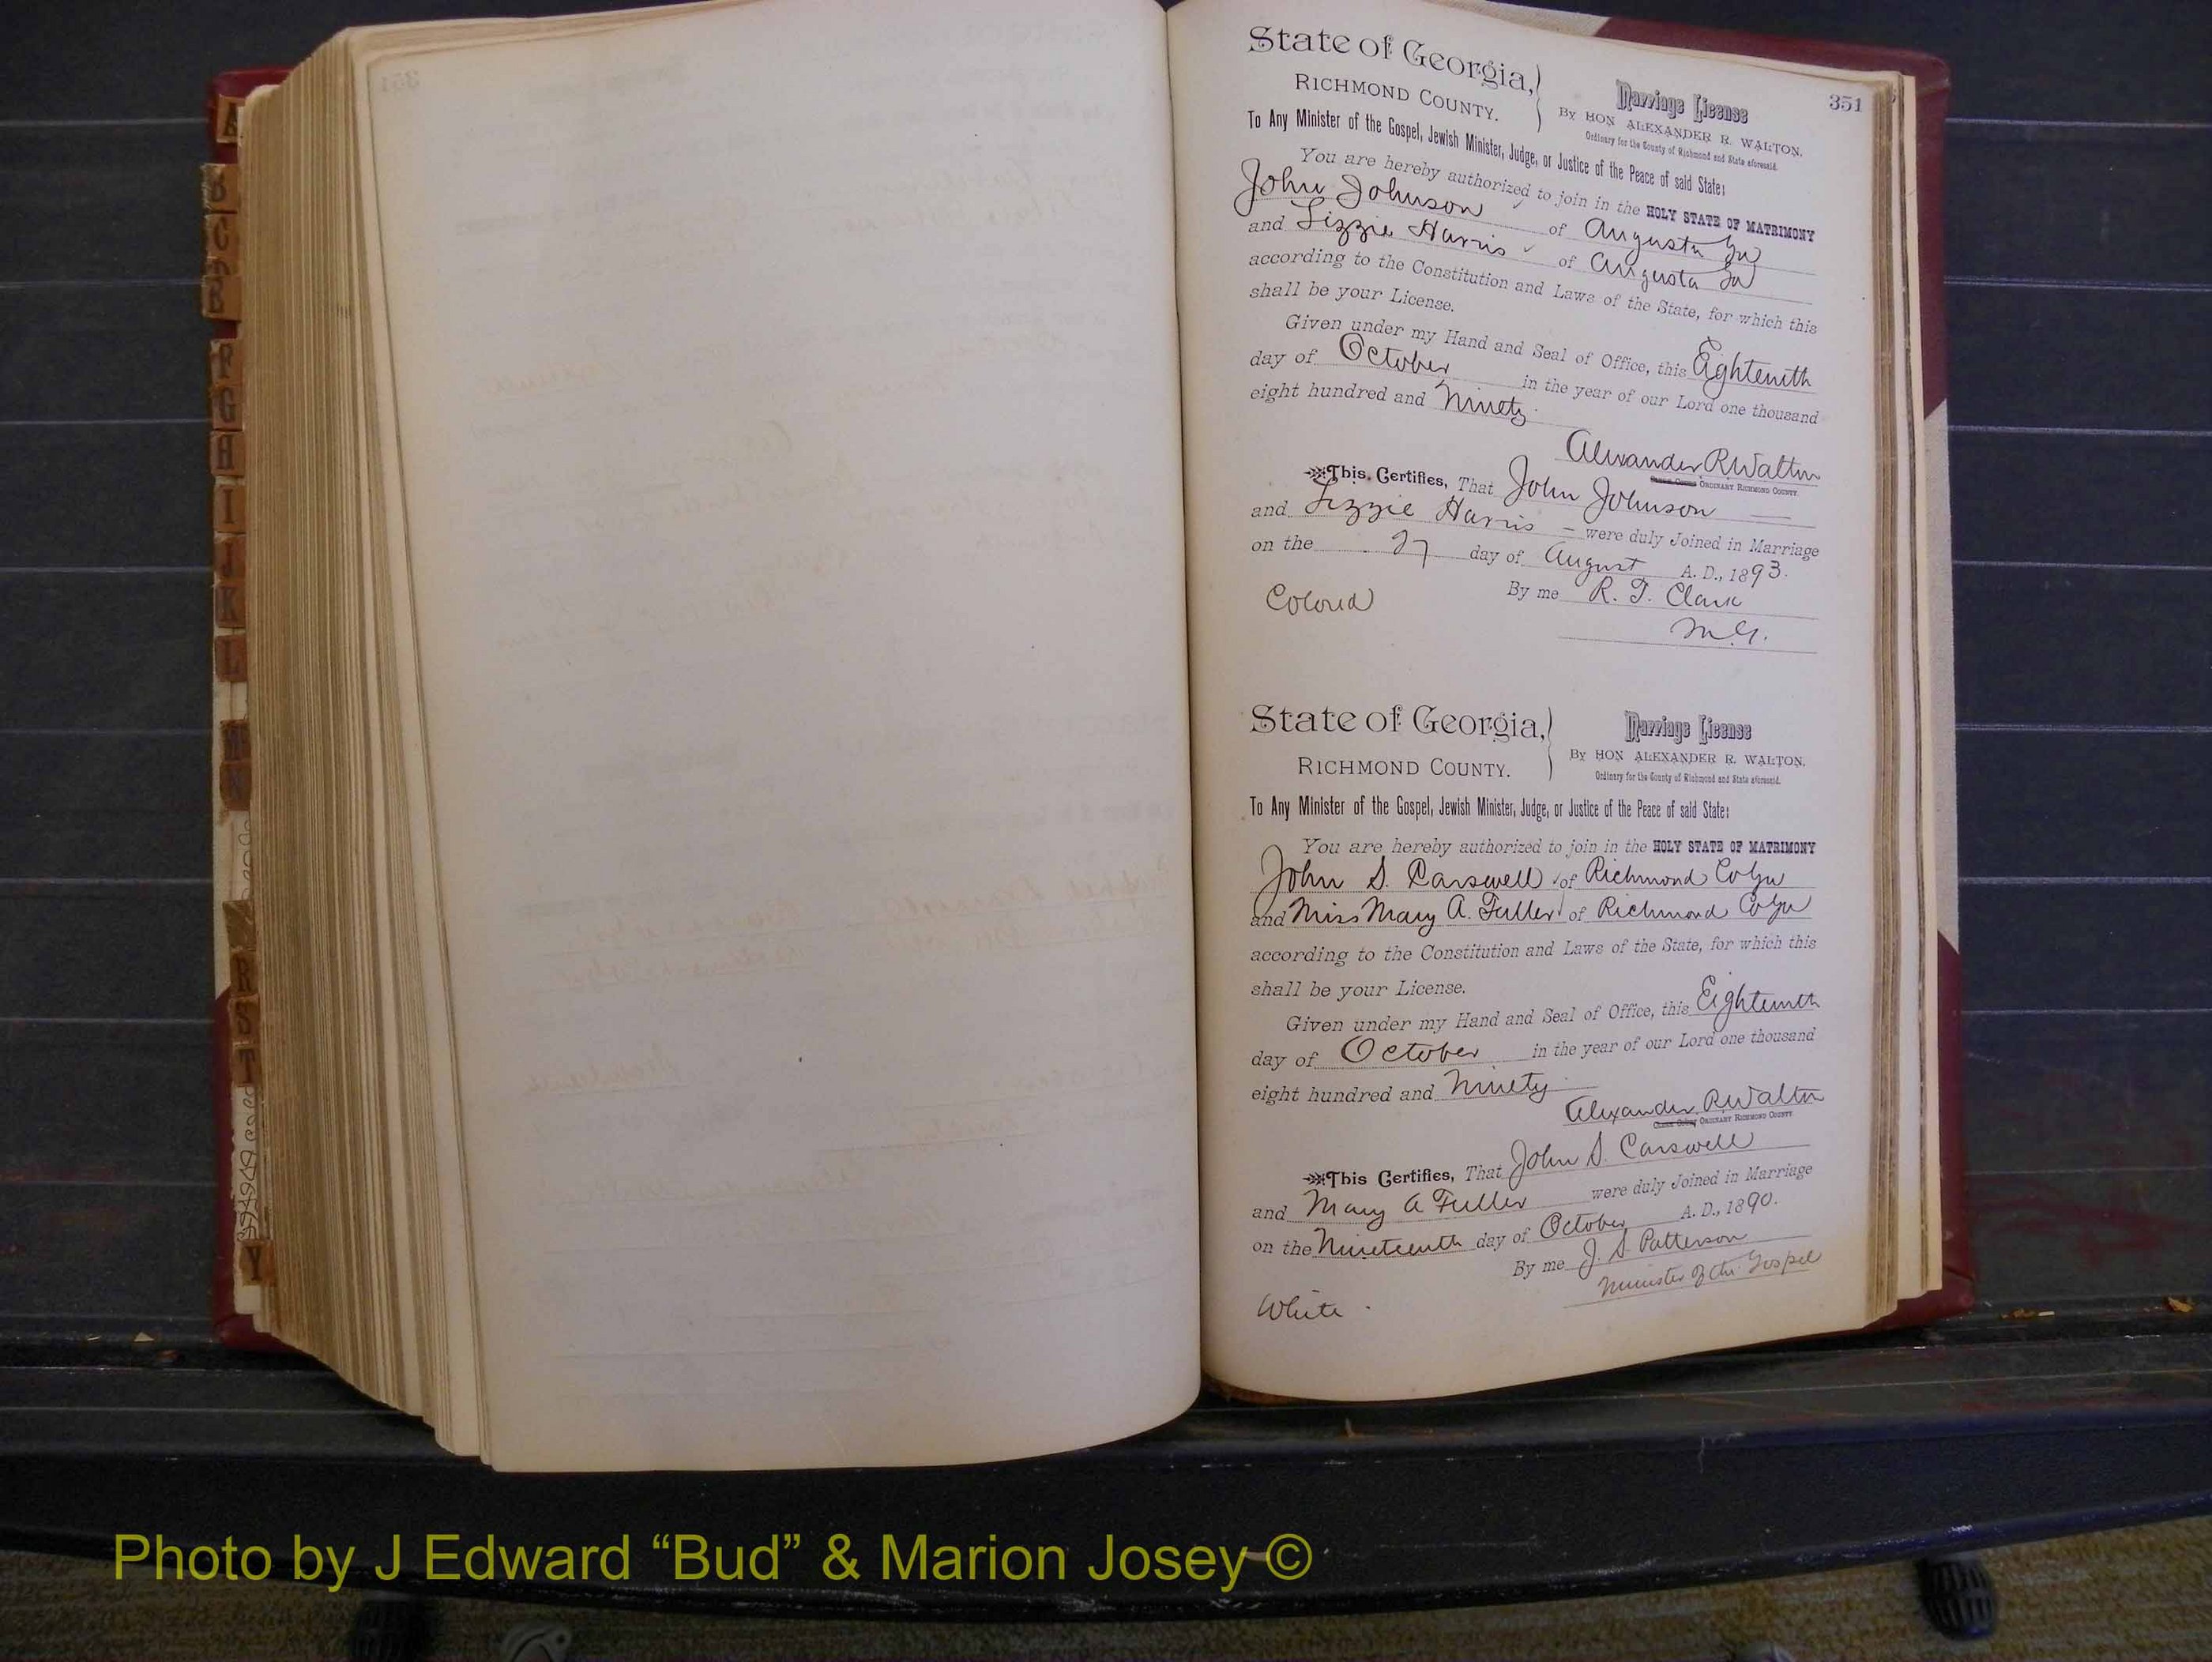 351
State of Georgia,
RICHMOND COUNTY.
Marriage License
By HON ALEXANDER R. WALTON,
Ordinary for the County of Richmond and State aforesaid.
To Any Minister of the Gospel, Jewish Minister, Judge, or Justice of the Peace of said State:
You are hereby authorized to join in the HOLY STATE OF MATRIMONY
John Johnson of Augusta Ga
and Lizzie Harris of Augusta Ga
according to the Constitution and Laws of the State, for which this
shall be your License.
Given under my Hand and Seal of Office, this Eighteenth
day of October in the year of our Lord one thousand
eight hundred and Ninety
Alexander R Walton
ORDINARY RICHMOND COUNTY
This Certifies, That John Johnson
and Lizzie Harris were duly Joined in Marriage
on the 27 day of August A. D., 1893.
By me R. T. Clark
M. G.
Colored
State of Georgia,
RICHMOND COUNTY.
Marriage License
By HON ALEXANDER R. WALTON,
Ordinary for the County of Richmond and State aforesaid.
To Any Minister of the Gospel, Jewish Minister, Judge, or Justice of the Peace of said State:
You are hereby authorized to join in the HOLY STATE OF MATRIMONY
John S. Carswell of Richmond Co Ga
and Miss Mary A. Fuller of Richmond Co Ga
according to the Constitution and Laws of the State, for which this
shall be your License.
Given under my Hand and Seal of Office, this Eighteenth
day of October in the year of our Lord one thousand
eight hundred and Ninety
Alexander R Walton
ORDINARY RICHMOND COUNTY
This Certifies, That John S. Carswell
and Mary A Fuller were duly Joined in Marriage
on the Nineteenth day of October A. D., 1890.
By me J. S. Patterson
Minister of the Gospel
White
A
B
C
F
G
H
I
J
K
L
M
N
R
S
T
Y
Photo by J Edward “Bud” & Marion Josey ©